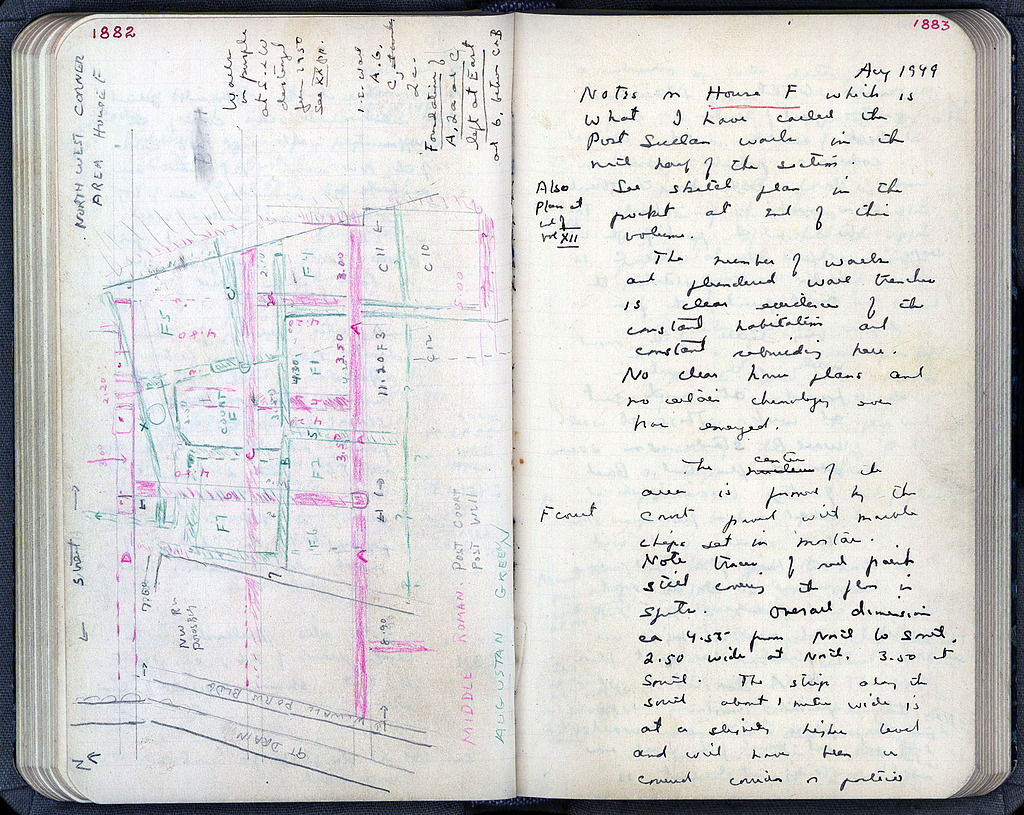 1882
NORTH WEST CORNER
AREA HOUSE F
Walls
in purple
at S + W
destroyed
June 1950
See XX
A, 6,
2c.
Foundation of
A, 2a and C
left at East
and 6, between C & B
F5
4.80
C'
F4
3.00
C11
E
C10
5.00
A
F3
11.20
C12
F1
4.30
3.50
COURT
F
2.20
3.00
X
C
B
F2
5
F7
F6
D
Street
NW Rm
Poros Bldg
7
A
8.90
N
GT DRAIN
WALL POROS BLDG
MIDDLE ROMAN
AUGUSTAN GREEN
POST COURT
POST WELL
1883
Aug 1949
Notes on House F which is
What I have called the
Post Sullan walls in the
north half of the section
Also
Plan at
end of
vol XII
See sketch plan in the
pocket at end of this
volume.
The number of walls
and plundered wall trenches
is clear evidence of the
constant habitation and
constant rebuilding here.
No clear house plans and
no certain chronology even
have emerged.
The center of the
area is formed by the
F court
Court paved with marble
chips set in mortar.
Note traces of red paint
still covering the floor in
spots. Overall dimension
ca 4.55 from North to South.
2.50 wide at North. 3.50 at
South. The strip along the
south about 1 meter wide is
at a slightly higher level
and will have been a
covered corridor or portico